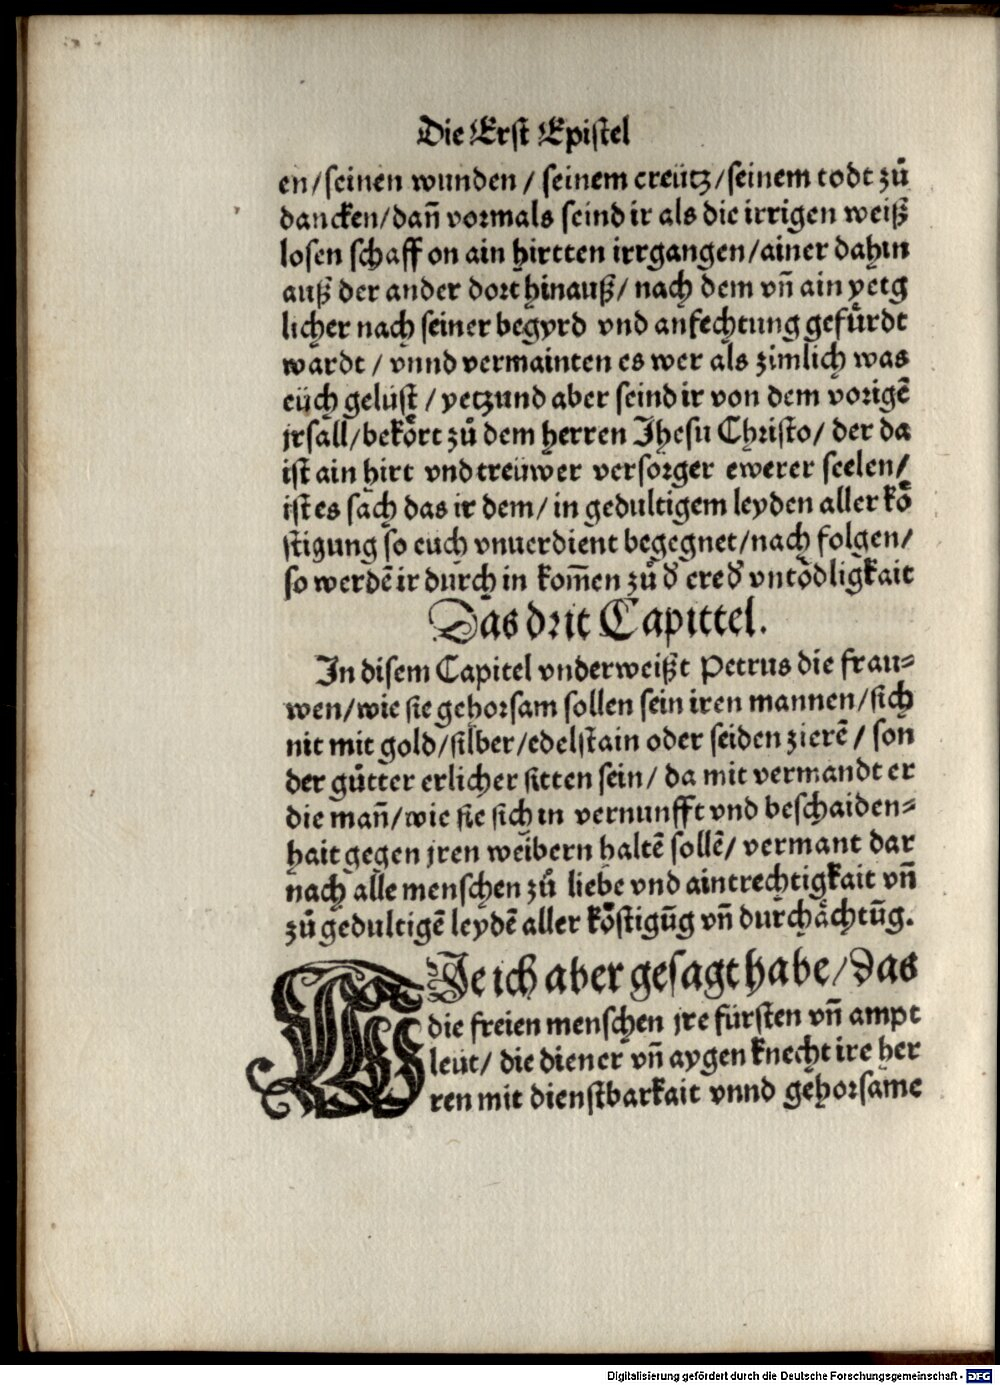 Die Erst Epistel
en/seinen wunden / seinem creütz/seinem todt zů
dancken/dañ vormals seind ir als die irrigen weiß
losen schaff on ain hirtten irrgangen/ainer dahin
auß der ander dort hinauß/ nach dem vñ ain yetg
licher nach seiner begyrd vnd anfechtung gefürdt
wardt / vnnd vermainten es wer als zimlich was
eüch gelust / yetzund aber seind ir von dem vorigẽ
jrsall/bekört zů dem herren Jhesu Christo/ der da
ist ain hirt vnd treüwer versorger ewerer seelen/
ist es sach das ir dem/ in gedultigem leyden aller kö
stigung so euch vnuerdient begegnet/nach folgen/
so werdẽ ir durch in kom̃en zů d̕ ere d̕ vntödligkait
Das drit Capittel.
In disem Capitel vnderweißt Petrus die frau⸗
wen/wie sie gehorsam sollen sein iren mannen/sich
nit mit gold/silber/edelstain oder seiden zierẽ / son
der gůtter erlicher sitten sein/ da mit vermandt er
die mañ/wie sie sich in vernunfft vnd beschaiden⸗
hait gegen jren weibern haltẽ sollẽ/ vermant dar
nach alle menschen zů liebe vnd aintrechtigkait vñ
zů gedultigẽ leydẽ aller köstigũg vñ durchächtũg.
WJe ich aber gesagt habe/das
die freien menschen jre fürsten vñ ampt
leut/ die diener vñ aygen knecht ire her
ren mit dienstbarkait vnnd gehorsame
Digitalisierung gefördert durch die Deutsche Forschungsgemeinschaft - DFG